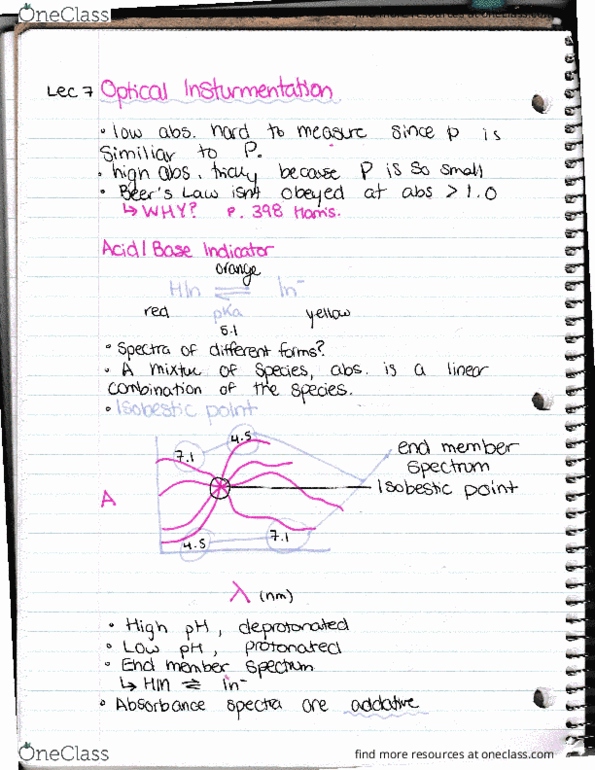 OneClass
find more resources at oneclass.com
Lec 7 Optical Insturmentation
• low abs. hard to measure since p is
similiar to P.
• high abs. tricky because P is so small
• Beer's Law isnt obeyed at abs > 1.0
↳ WHY? P. 398 Harris.
Acid/Base Indicator
orange
HIn ⇌ In⁻
red pKa yellow
5.1
• Spectra of different forms?
• A mixture of species, abs. is a linear
combination of the species.
• Isobestic point
4.5
7.1
end member
spectrum
Isobestic point
A
4.5
7.1
λ (nm)
• High pH, deprotonated
• Low pH, protonated
• End member spectrum
↳ HIn ⇌ In⁻
• Absorbance spectra are addative
OneClass
find more resources at oneclass.com